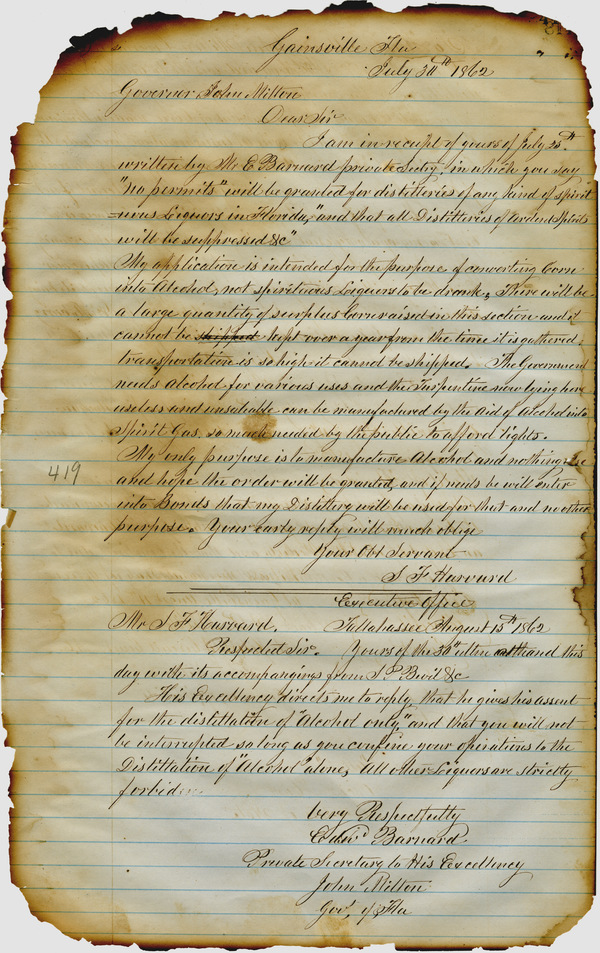 Gainsville Fla
July 30th 1862
Governor John Milton
Dear Sir
I am in receipt of yours of July 25th
written by Mr E Barnard private Sectry, in which you say
"no permits" will be granted for distilleries of any kind of spirit
=uous Liquors in Florida," and that all Distilleries of ardent spirits
will be suppressed &c"
My application is intended for the purpose of converting Corn
into Alcohol, not spirituous Liquors to be drank. There will be
a large quantity of surplus Corn raised in this section and it
cannot be shipped kept over a year from the time it is gathered
transportation is so high it cannot be shipped. The Government
needs Alcohol for various uses and the Turpentine now lying here
useless and unsalable can be manufactured by the Aid of Alcohol into
Spirit Gas, so much needed by the public to afford lights.
My only purpose is to manufacture Alcohol and nothing else
and hope the order will be granted, and if needs be will enter
419
into Bonds that my Distillery will be used for that and no other
purpose. Your early reply will much oblige
Your Obt Servant
S F Harvard
Executive Office
Mr S F Harvard. Tallahassee August 15th 1862
Respected Sir. Yours of the 30th ulto at hand this
day with its accompanyings from &c
His Excellency directs me to reply that he gives his assent
for the distillation of "Alcohol only," and that you will not
be interrupted so long as you confine your opirations to the
Distillation of "Alcohol" alone, all other Liquors are strictly
forbiden
Very Respectfully
Edwd Barnard
Private Secretary to His Excellency
John Milton
Govr of Fla